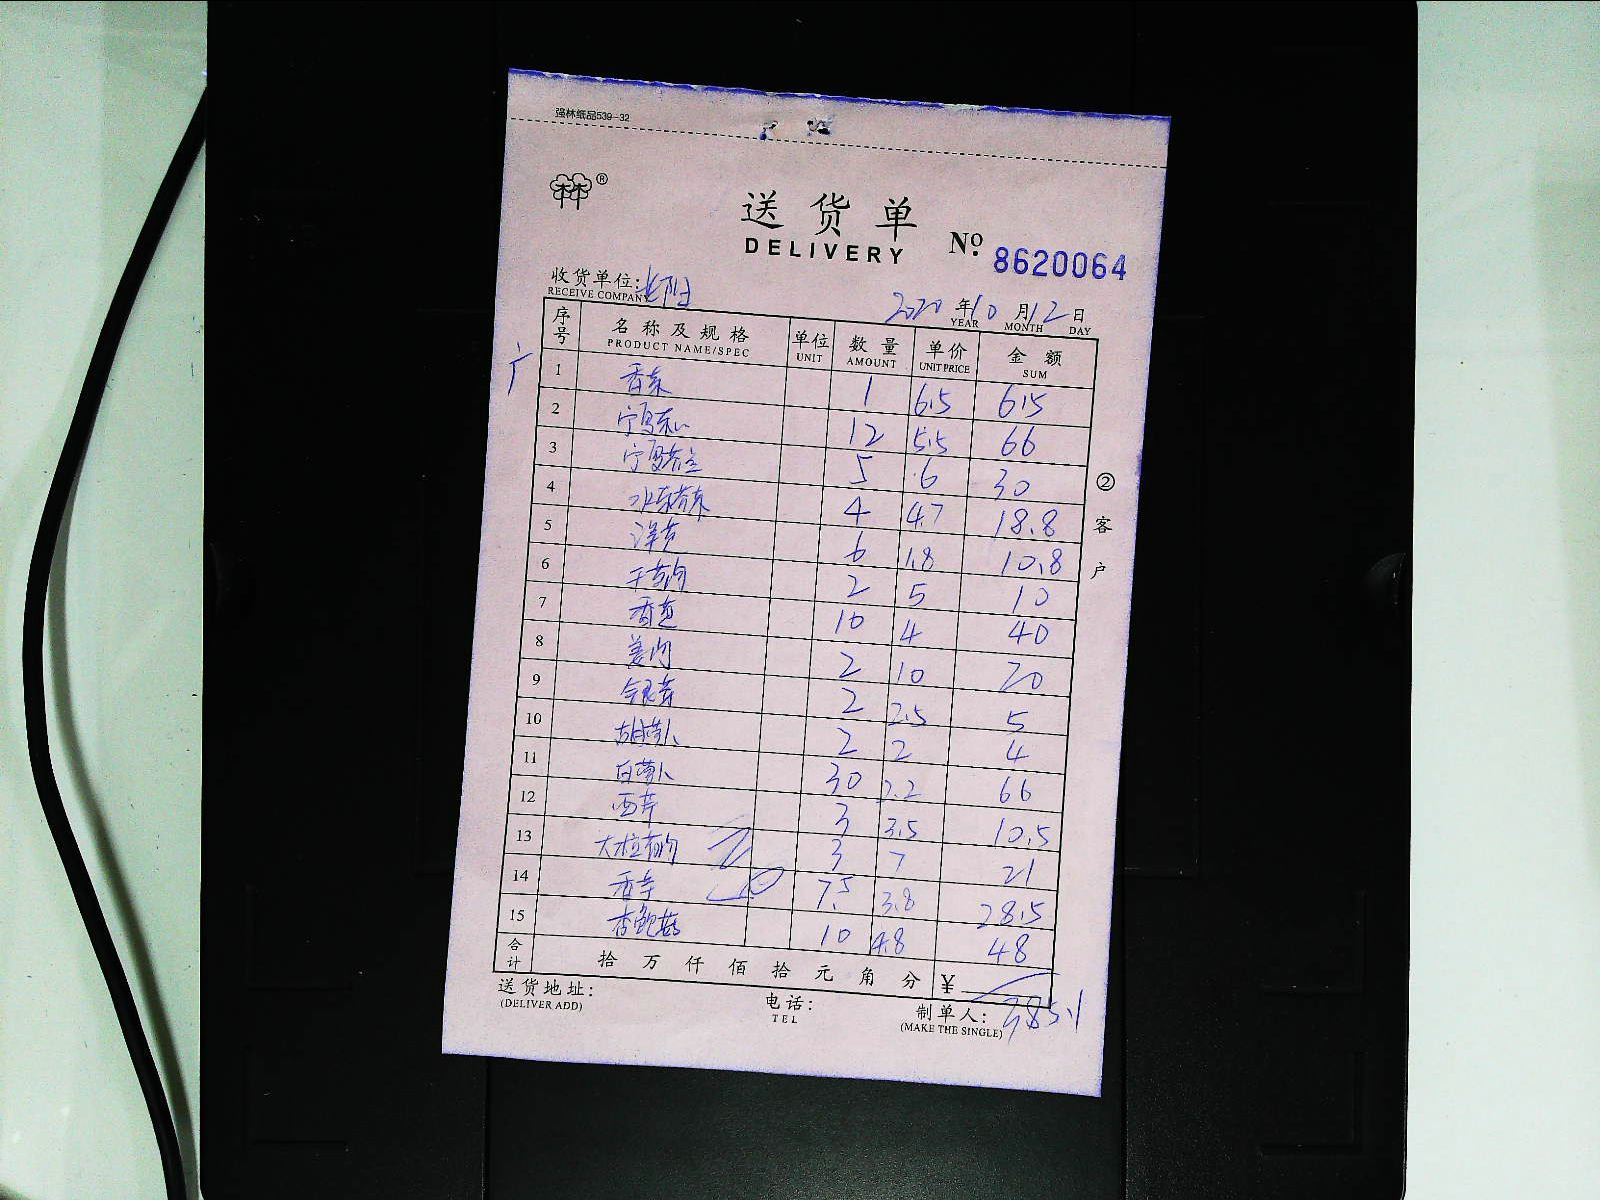 强林纸品539-32
®
送货单
DELIVERY
No. 8620064
收货单位:
RECEIVE COMPANY
2020年10月12日
YEAR MONTH DAY
序号 名称及规格 单位 数量 单价 金额
PRODUCT NAME/SPEC UNIT AMOUNT UNIT PRICE SUM
1 香菜 1 6.5 6.5
2 宁夏菜心 12 5.5 66
3 宁夏芥兰 5 6 30
4 水东芥菜 4 4.7 18.8
5 洋芫 6 1.8 10.8
6 干葱肉 2 5 10
7 香葱 10 4 40
8 姜肉 2 10 20
9 银芽 2 2.5 5
10 胡萝卜 2 2 4
11 白萝卜 30 2.2 66
12 西芹 3 3.5 10.5
13 大粒 3 7 21
14 香芋 7.5 3.8 28.5
15 杏鲍菇 10 4.8 48
合计 拾万仟佰拾元角分 ¥
385.1
送货地址:
(DELIVER ADD)
电话:
TEL
制单人:
(MAKE THE SINGLE)
②客户